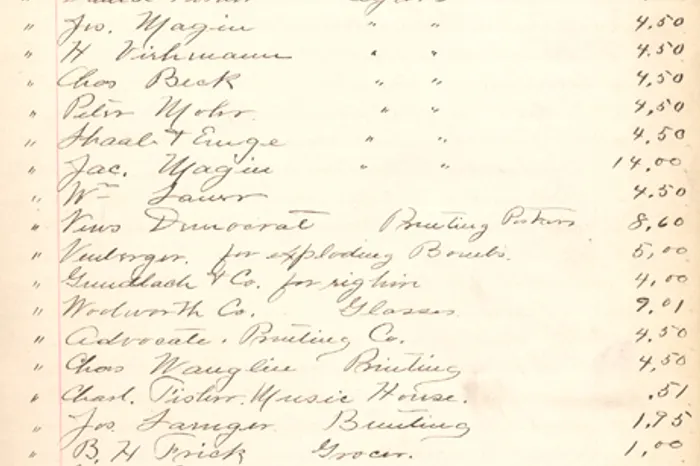 " Jos. Magin " " 4.50
" H Virhmann " " 4.50
" Chas Beck " " 4.50
" Peter Mohr. " " 4,50
" & Emge " " 4.50
" Jac. Magin " " 14.00
" Wm Sauer 4.50
" News Democrat Printing Posters 8,60
" for exploding Bombs. 5,00
" Gundlach & Co. for 4,00
" Woolworth Co. Glasses 9.01
" Advocate. Printing Co. 4.50
" Chas Wangelin Printing 4,50
" Charl. Music House. .51
" Jos. Bunting 1.95
" B. H Frick Grocer. 1,00